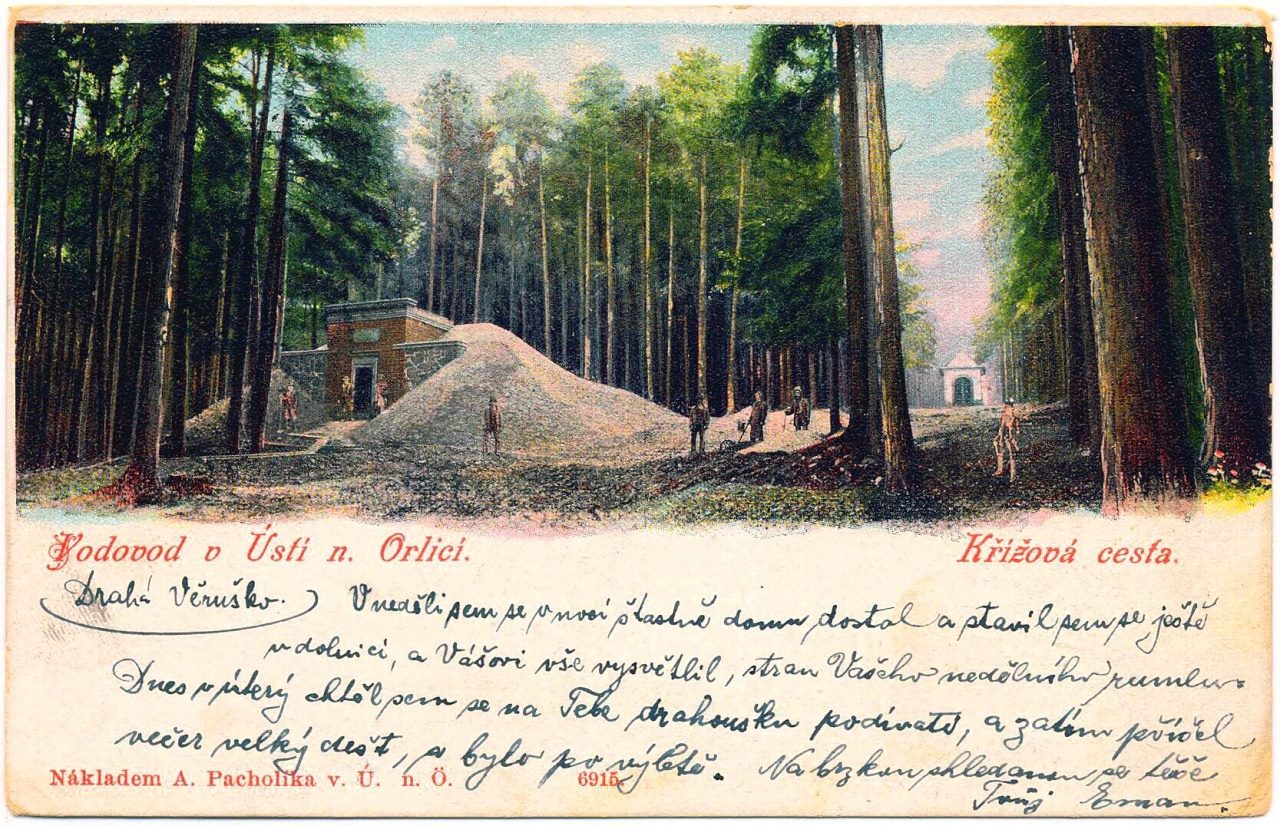 Vodovod v Ústí n. Orlicí. Křížová cesta.
Drahá Věruško. V neděli sem se v noci štastně domu dostal a stavil sem se ještě
v dolnici, a Vášovi vše vysvětlil, stran Vašeho nedělního rumlu.
Dnes v úterý chtěl sem se na Tebe drahoušku podívati, a zatím přišel
večer velký dešt, a bylo po výletě. Na brzkou shledanou se těší
Nákladem A. Pacholíka v. Ú. n. Ö. 6915.
Tvůj Eman.